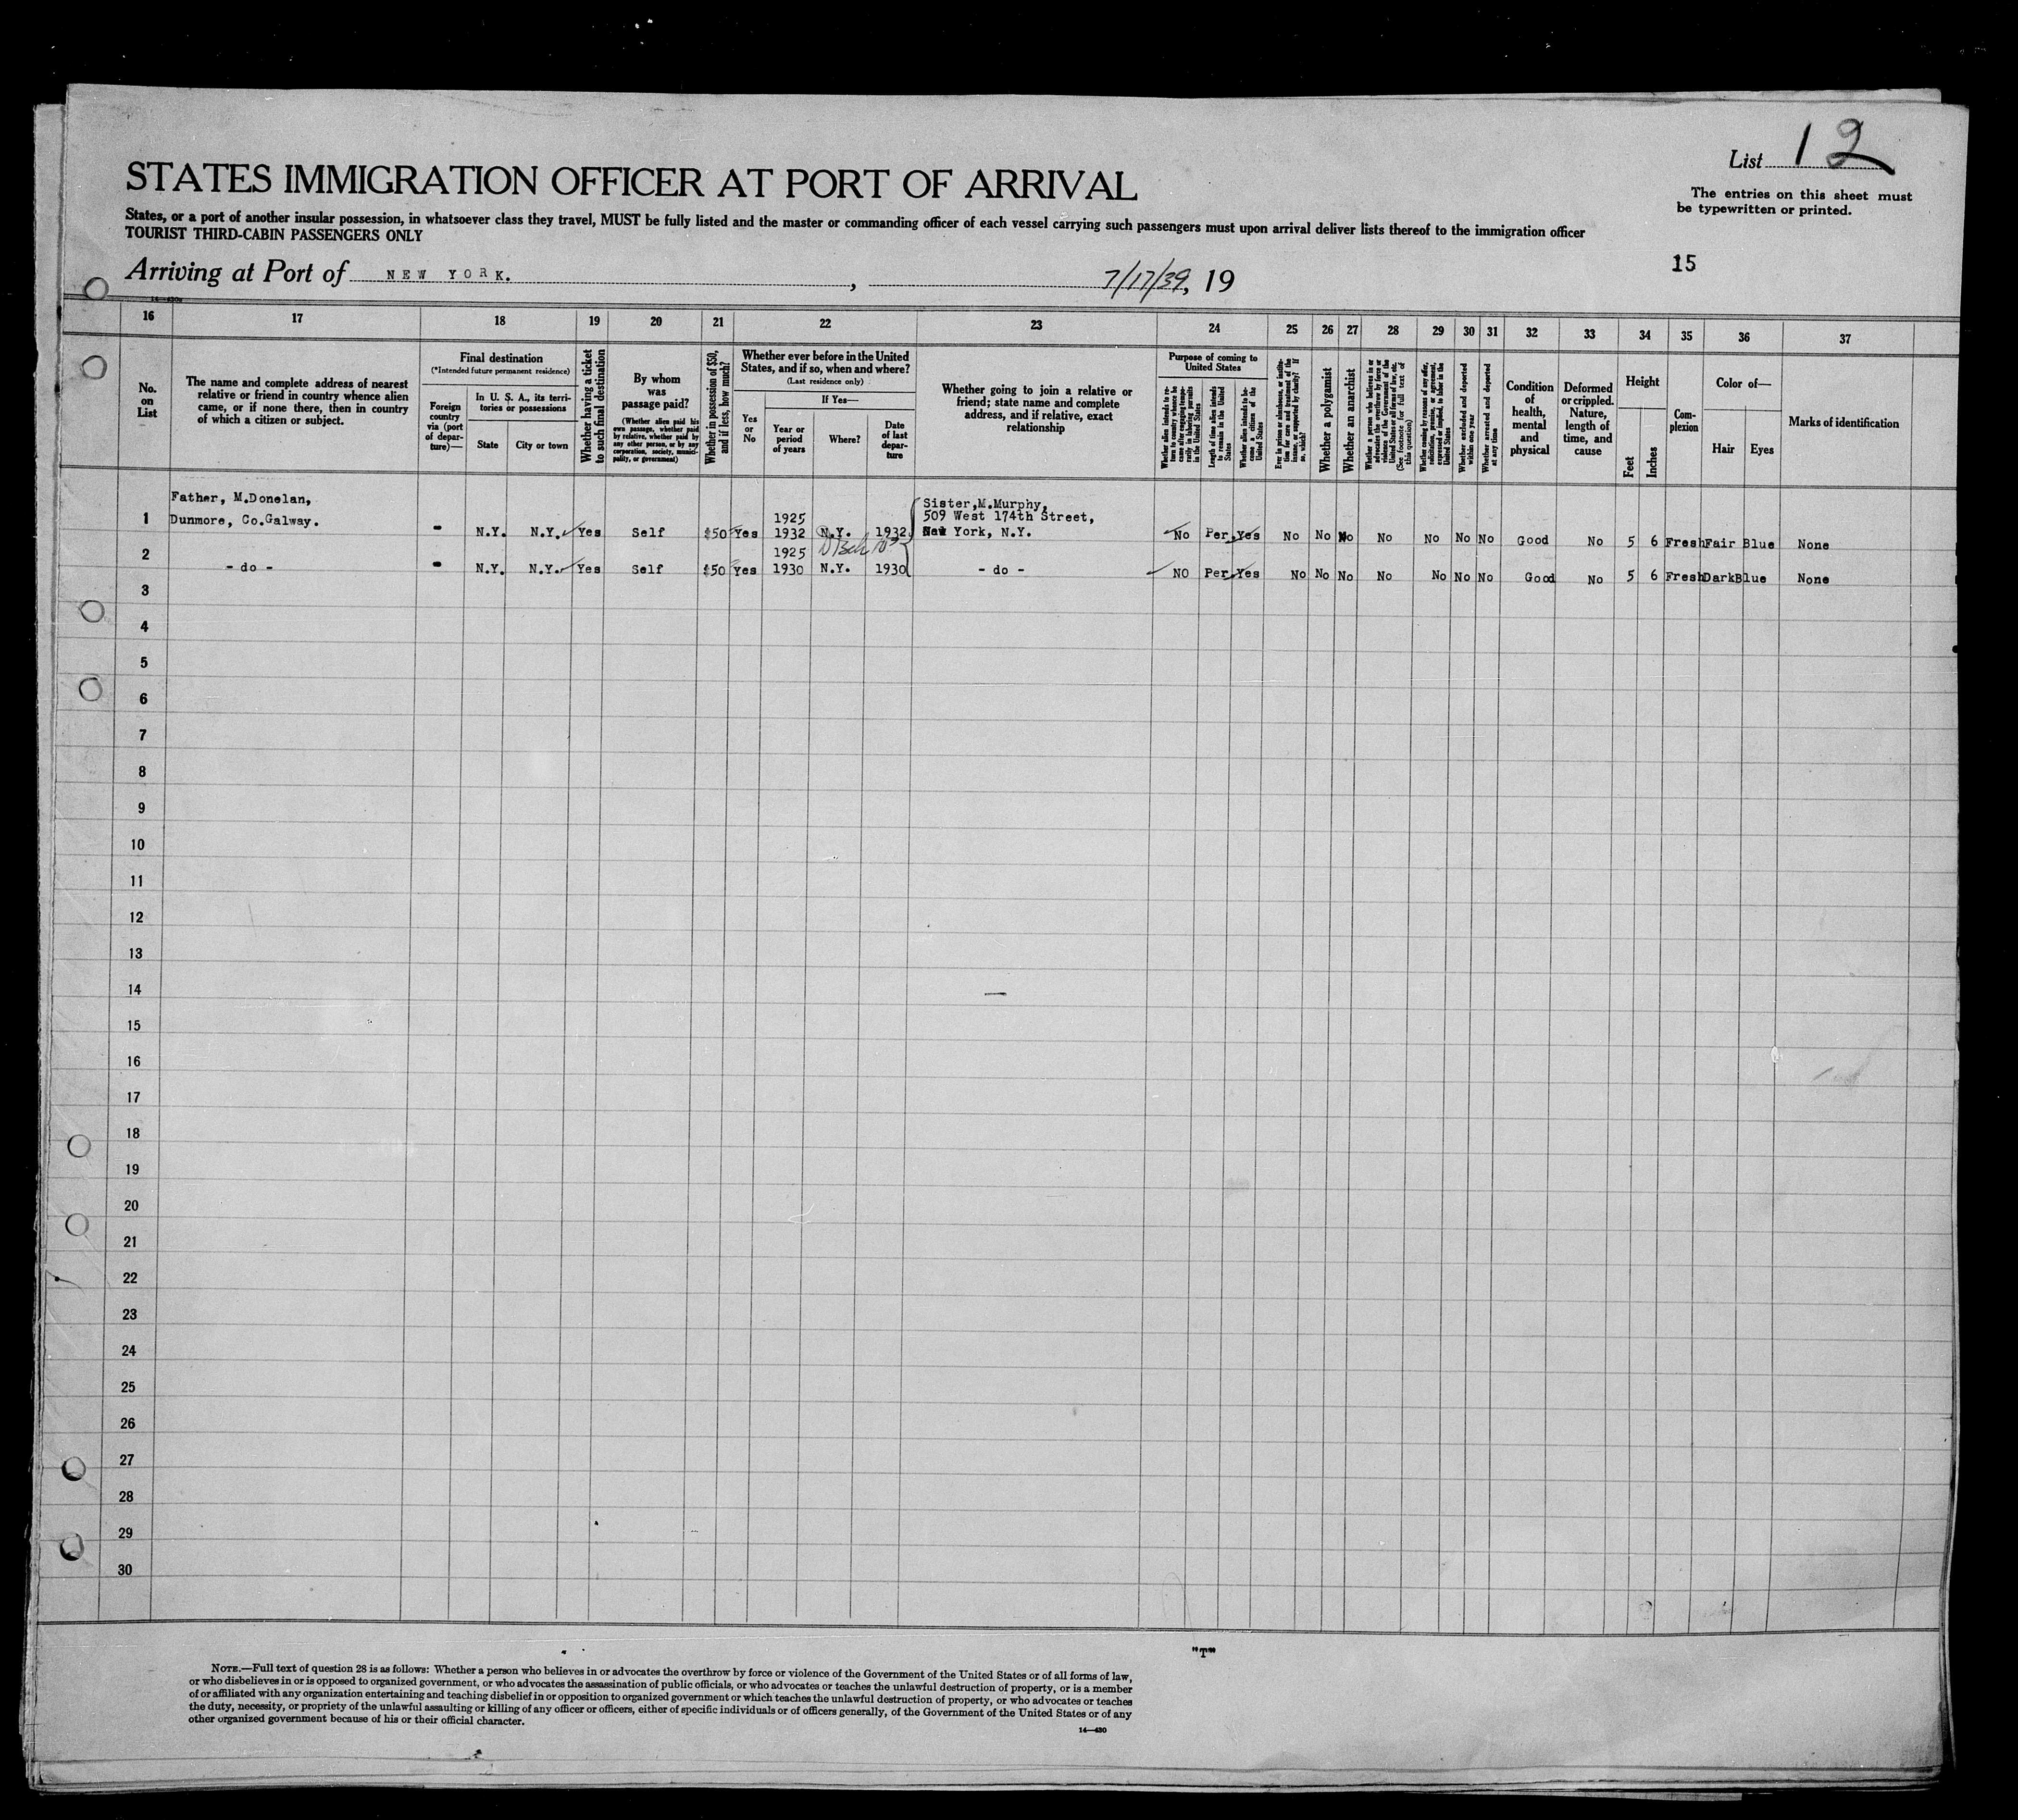 List 12
STATES IMMIGRATION OFFICER AT PORT OF ARRIVAL
The entries on this sheet must
be typewritten or printed.
States, or a port of another insular possession, in whatsoever class they travel, MUST be fully listed and the master or commanding officer of each vessel carrying such passengers must upon arrival deliver lists thereof to the immigration officer
TOURIST THIRD-CABIN PASSENGERS ONLY
15
Arriving at Port of NEW YORK. , 7/17/39, 19
16 17 18 19 20 21 22 23 24 25 26 27 28 29 30 31 32 33 34 35 36 37
No.
on
List
The name and complete address of nearest
relative or friend in country whence alien
came, or if none there, then in country
of which a citizen or subject.
Final destination
(*Intended future permanent residence)
Foreign
country
via (port
of depar-
ture)—
In U. S. A., its terri-
tories or possessions
State
City or town
Whether having a ticket
to such final destination
By whom
was
passage paid?
(Whether alien paid his
own passage, whether paid
by relative, whether paid by
any other person, or by any
corporation, society, munici-
pality, or government)
Whether in possession of $50,
and if less, how much?
Whether ever before in the United
States, and if so, when and where?
(Last residence only)
Yes
or
No
If Yes—
Year or
period
of years
Where?
Date
of last
depar-
ture
Whether going to join a relative or
friend; state name and complete
address, and if relative, exact
relationship
Purpose of coming to
United States
Whether alien intends to re-
turn to country whence he
came after engaging tempo-
rarily in laboring pursuits
in the United States
Length of time alien intends
to remain in the United
States
Whether alien intends to be-
come a citizen of the
United States
Ever in prison or almshouse, or institu-
tion for care and treatment of the
insane, or supported by charity? If
so, which?
Whether a polygamist
Whether an anarchist
Whether a person who believes in or
advocates the overthrow by force or
violence of the Government of the
United States or all forms of law, etc.
(See footnote for full text of
this question)
Whether coming by reasons of any offer,
solicitation, promise, or agreement,
expressed or implied, to labor in the
United States
Whether excluded and deported
within one year
Whether arrested and deported
at any time
Condition
of
health,
mental
and
physical
Deformed
or crippled.
Nature,
length of
time, and
cause
Height
Feet
Inches
Com-
plexion
Color of—
Hair
Eyes
Marks of identification
Father, M.Donelan,
Dunmore, Co.Galway.
1 - N.Y. N.Y. Yes Self $50 Yes 1925
1932 N.Y. 1932
Sister,M.Murphy,
509 West 174th Street,
New York, N.Y.
No Per. Yes No No No No No No No Good No 5 6 Fresh Fair Blue None
2 - do - - N.Y. N.Y. Yes Self $50 Yes 1925
1930 N.Y. 1930 - do - NO Per. Yes No No No No No No No Good No 5 6 Fresh Dark Blue None
3
4
5
6
7
8
9
10
11
12
13
14
15
16
17
18
19
20
21
22
23
24
25
26
27
28
29
30
"T"
NOTE.—Full text of question 28 is as follows: Whether a person who believes in or advocates the overthrow by force or violence of the Government of the United States or of all forms of law,
or who disbelieves in or is opposed to organized government, or who advocates the assassination of public officials, or who advocates or teaches the unlawful destruction of property, or is a member
of or affiliated with any organization entertaining and teaching disbelief in or opposition to organized government or which teaches the unlawful destruction of property, or who advocates or teaches
the duty, necessity, or propriety of the unlawful assaulting or killing of any officer or officers, either of specific individuals or of officers generally, of the Government of the United States or of any
other organized government because of his or their official character.
14—430